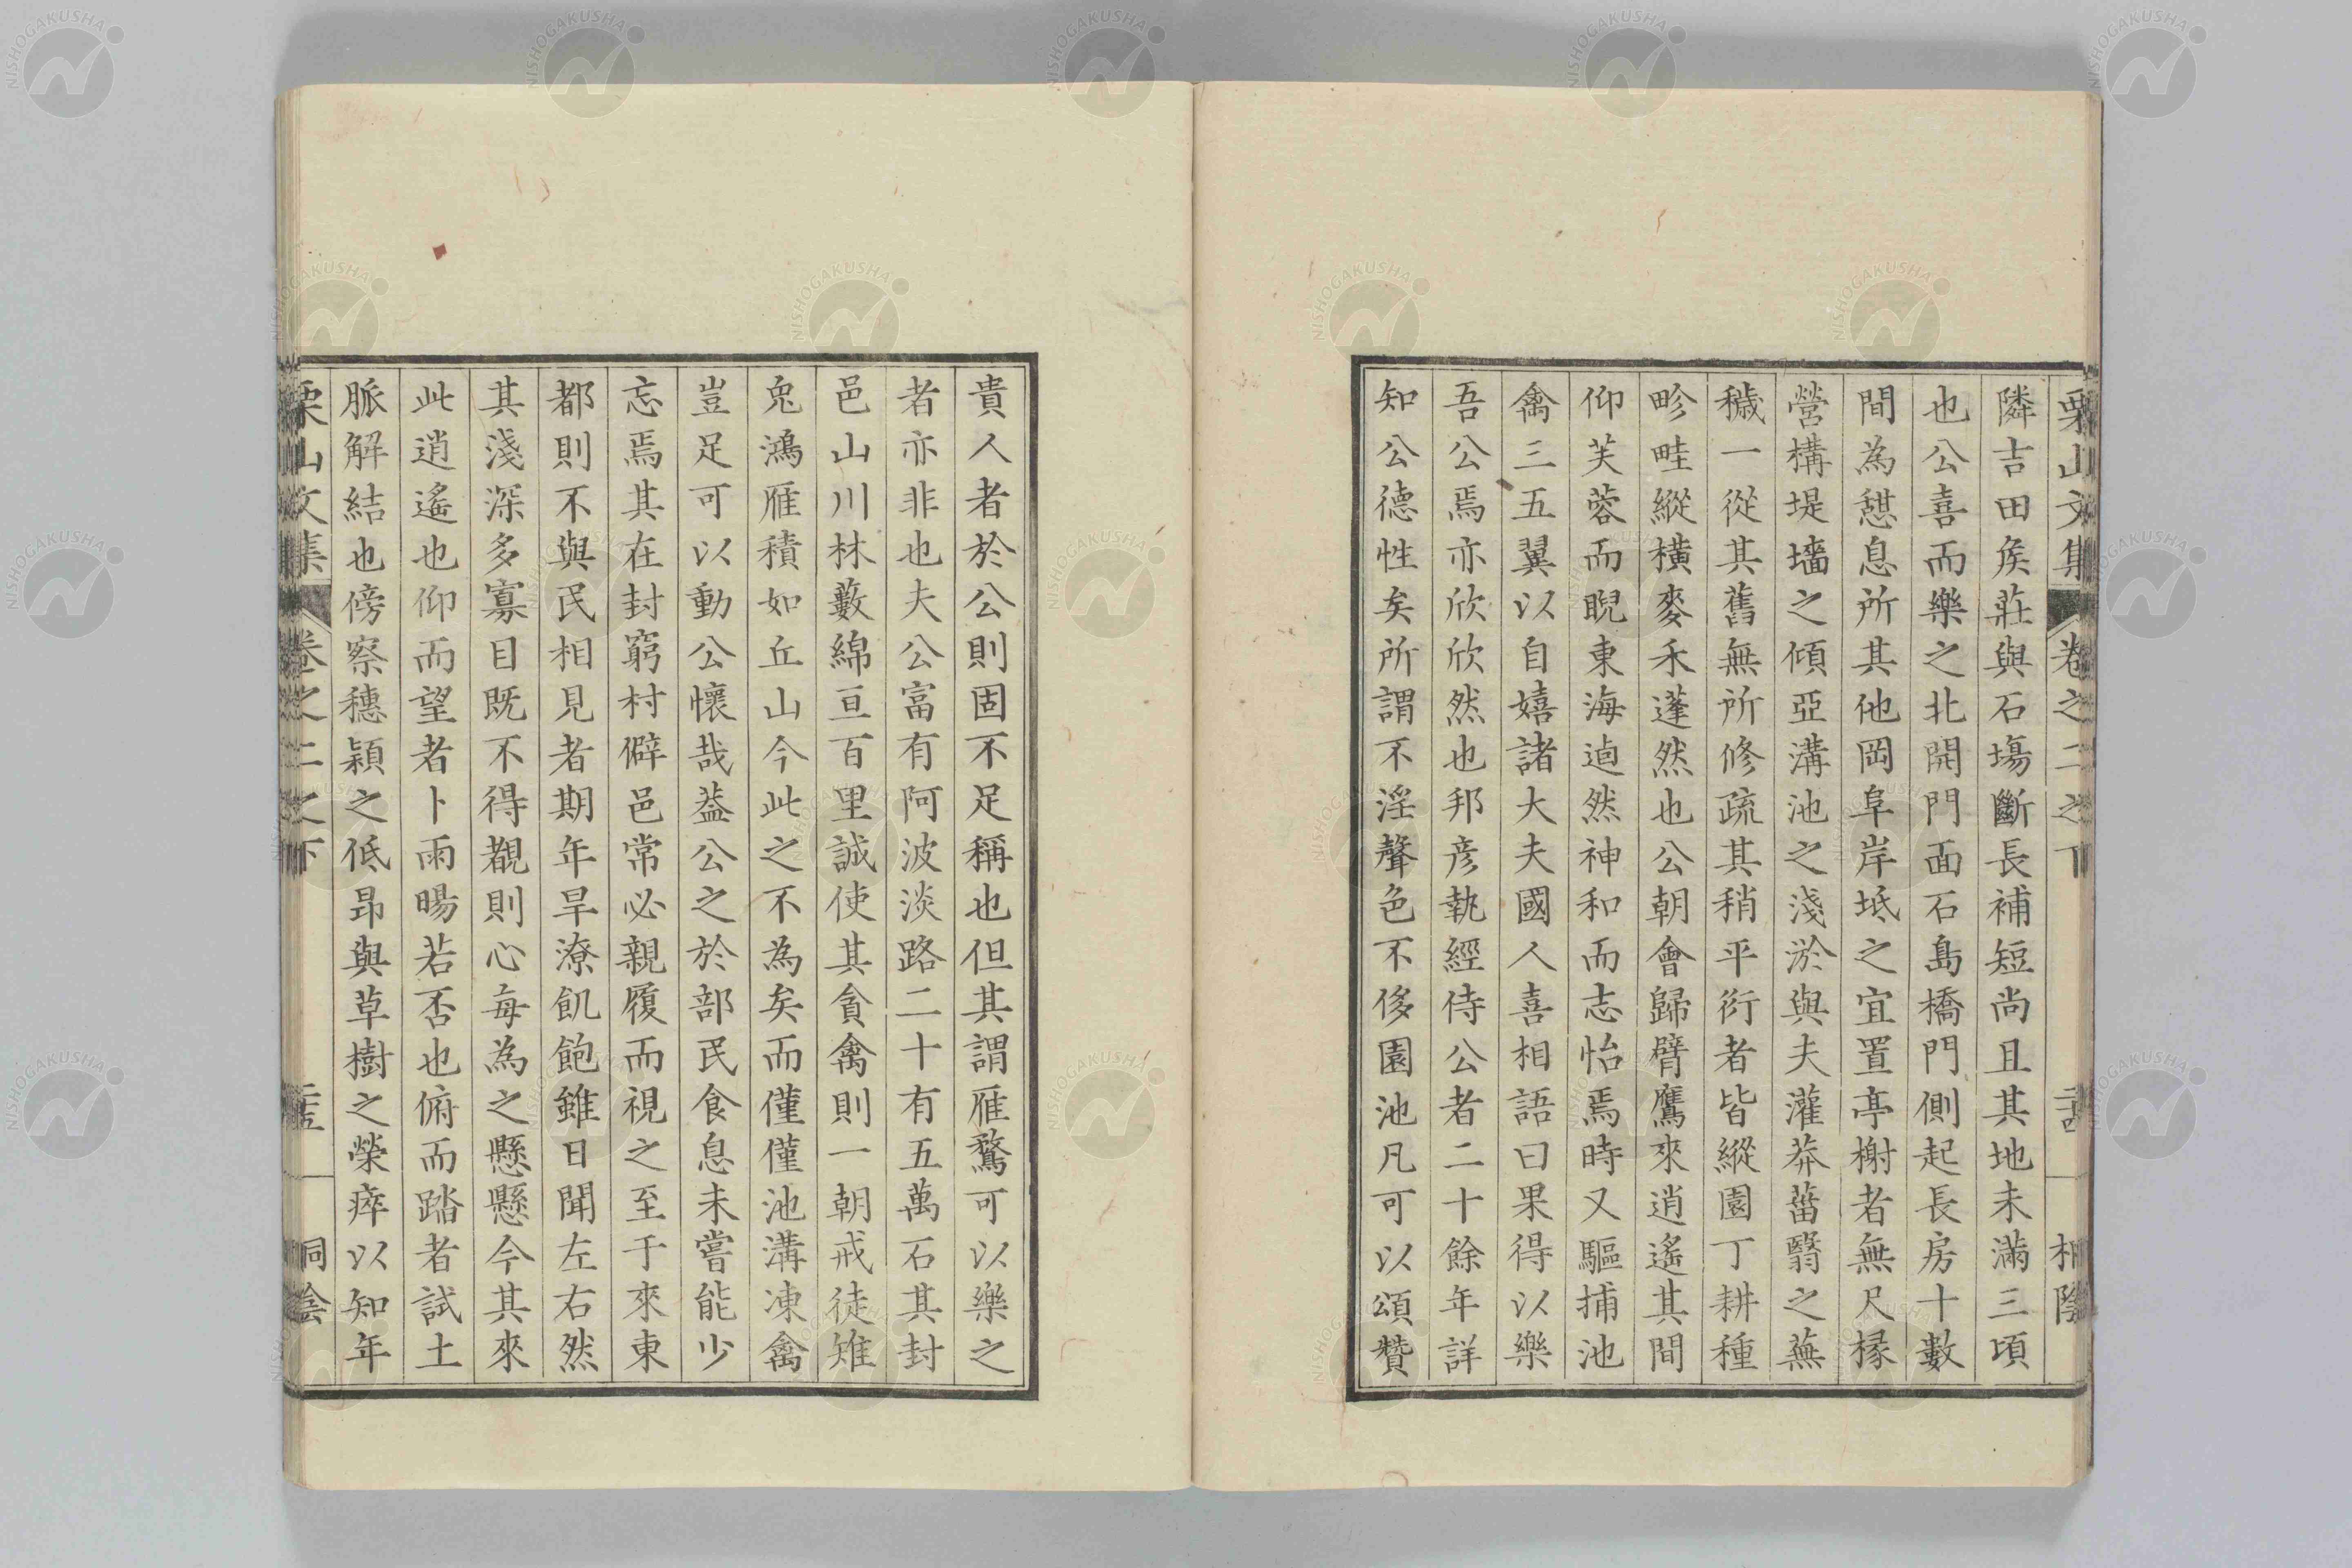 栗山文集 卷之二之下 桐陰
隣吉田矦莊與石塲斷長補短尚且其地未滿三頃
也公喜而樂之北開門面石島橋門側起長房十數
間為憇息所其他岡阜岸坻之宜置亭榭者無尺椽
營構堤墻之傾亞溝池之淺淤與夫灌莽菑翳之蕪
穢一從其舊無所修疏其稍平衍者皆縱園丁耕種
畛畦縱橫麥禾蓬然也公朝會歸臂鷹來逍遙其間
仰芙蓉而睨東海逌然神和而志怡焉時又驅捕池
禽三五翼以自嬉諸大夫國人喜相語曰果得以樂
吾公焉亦欣欣然也邦彦執經侍公者二十餘年詳
知公德性矣所謂不淫聲色不侈園池凡可以頌贊
貴人者於公則固不足稱也但其謂雁鶩可以樂之
者亦非也夫公富有阿波淡路二十有五萬石其封
邑山川林藪綿亘百里誠使其貪禽則一朝戒徒雉
兔鴻雁積如丘山今此之不為矣而僅僅池溝凍禽
豈足可以動公懷哉葢公之於部民食息未嘗能少
忘焉其在封窮村僻邑常必親履而視之至于來東
都則不與民相見者期年旱潦飢飽雖日聞左右然
其淺深多寡目既不得覩則心每為之懸懸今其來
此逍遙也仰而望者卜雨暘若否也俯而踏者試土
脈解結也傍察穗穎之低昂與草樹之榮瘁以知年
栗山文集 卷之二之下 桐陰
NISHOGAKUSHA